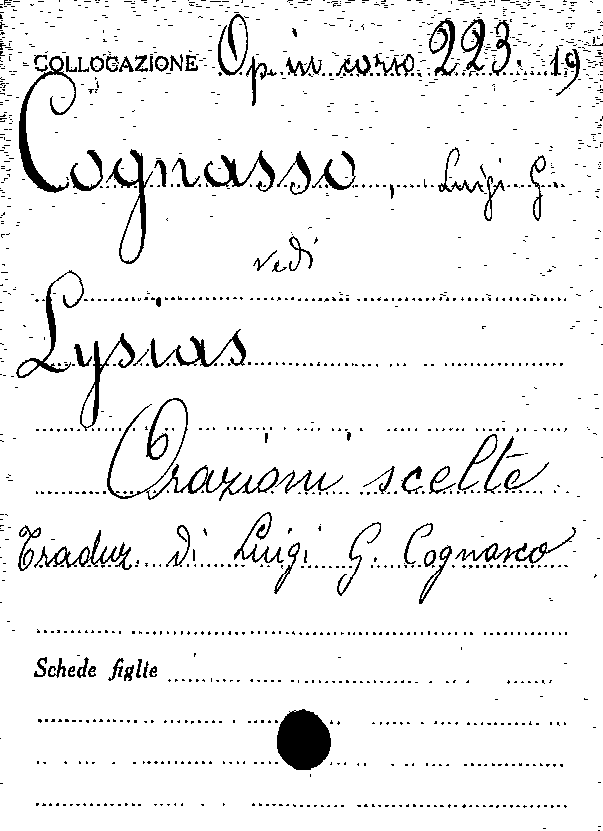 COLLOCAZIONE Op. in corso 223. 19
Cognasso, Luigi G.
vedi
Lysias
Orazioni scelte
Traduz. di Luigi G. Cognasso
Schede figlie